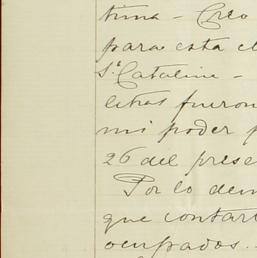 tuna - Creo
para esta el
Sª Catalina -
letras fueron
mi poder p
26 del prese
Por lo dem
que contar
ocupados.